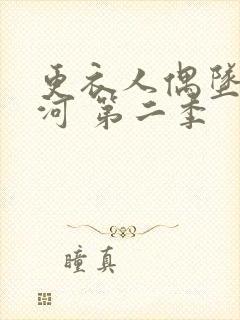 更衣人偶墜
河 第二季
瞳真